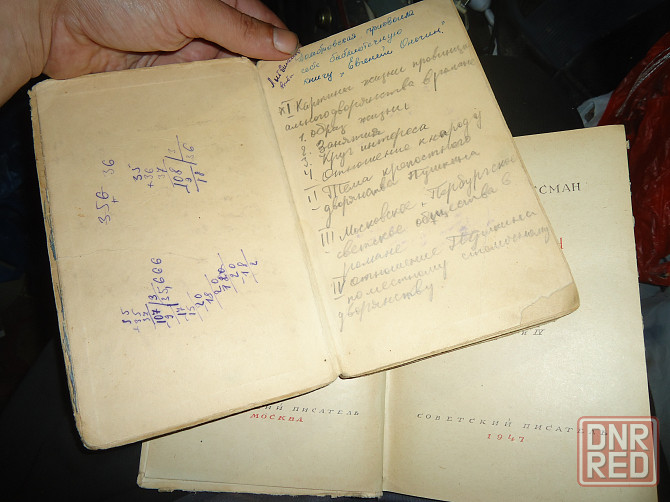 356 36
35
+36
37
108 | 3
9 36
18
35
+35
37
107 | 3
-9 35,666
17
-15
20
-18
20
-18
2
себе библиотечную
книгу "Евгений Онегин"
I Картины жизни провинци
ального дворянства в романе
1. образ жизни
2. Занятия
3. Круг интереса
4. Отношение к народу
II Тема крепостного
дворянства Пушкина
III Московское и Петербургское
светское общество в
романе
IV отношение
поместному столичному
дворянству.
СМАН
И IV
ИЙ ПИСАТЕЛЬ
МОСКВА
СОВЕТСКИЙ ПИСАТЕЛЬ
1947
DNR
RED